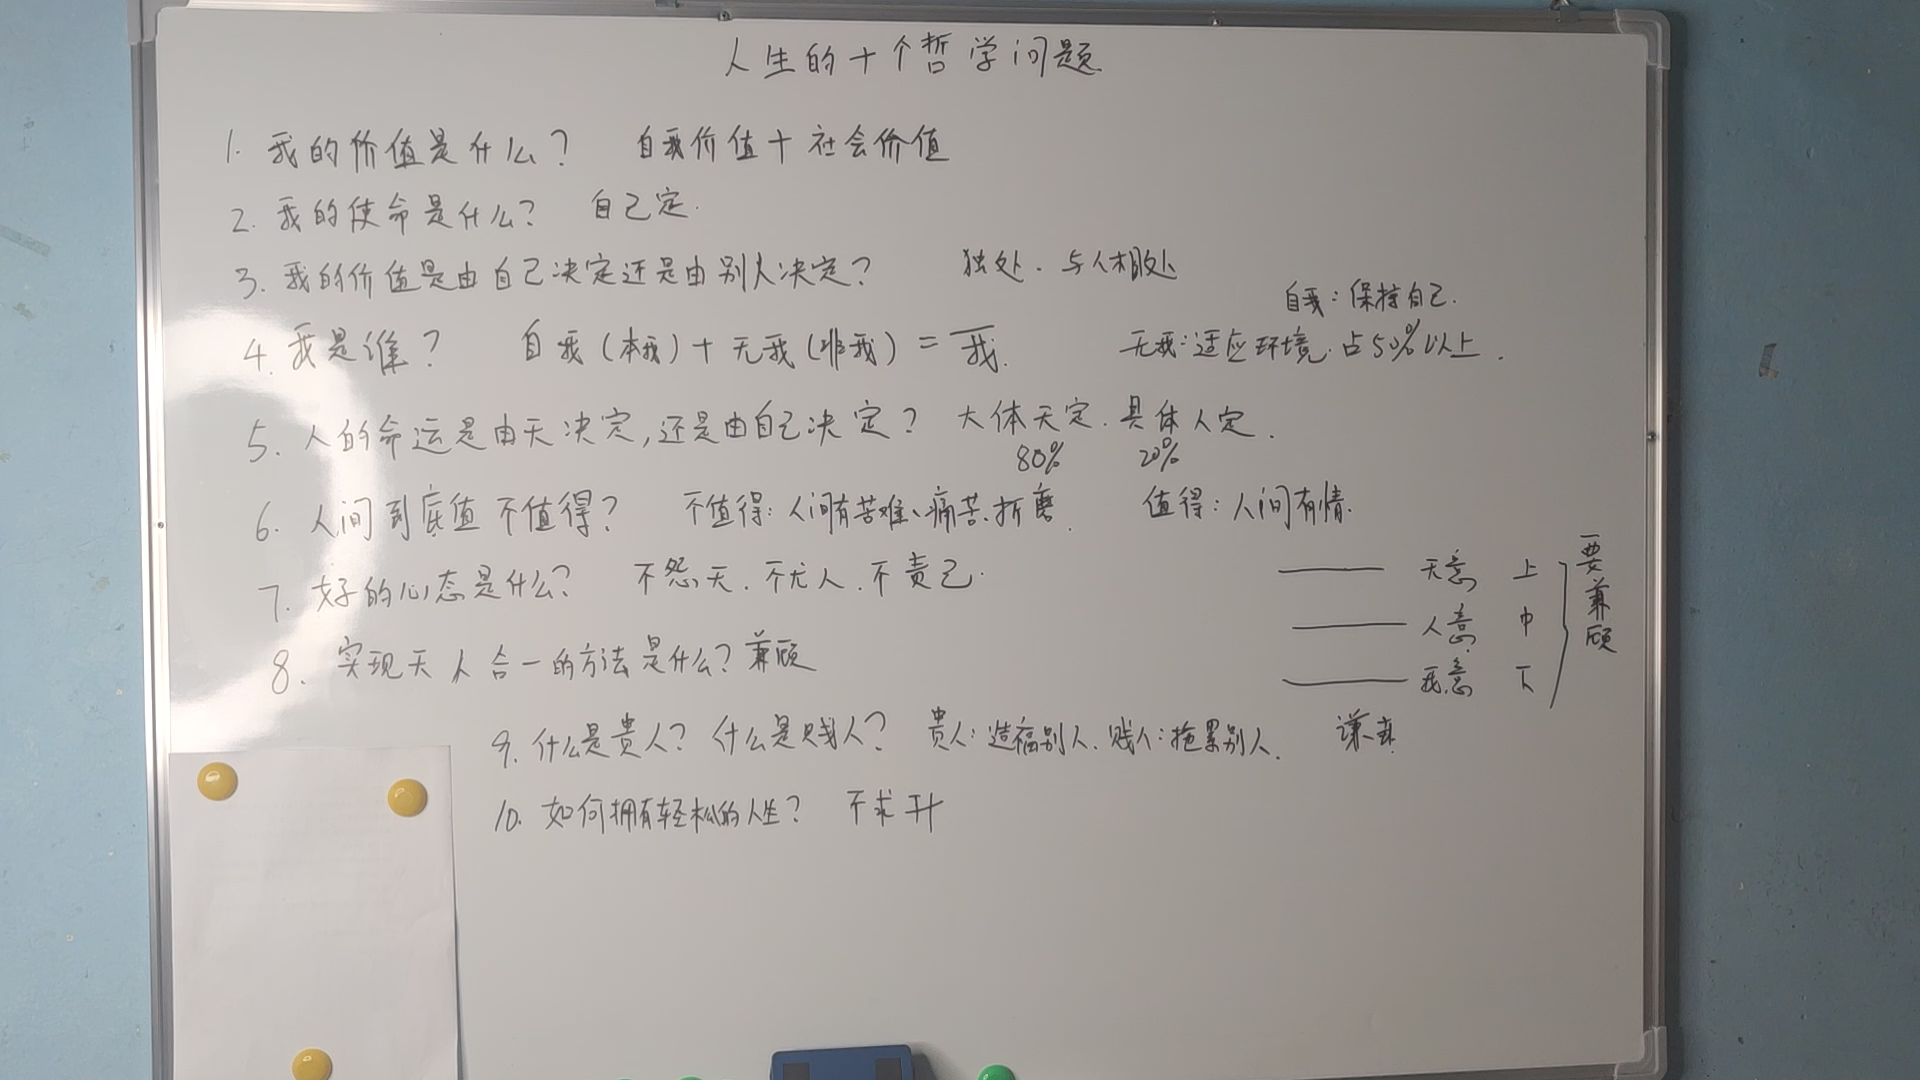 人生的十个哲学问题
1. 我的价值是什么? 自我价值+社会价值
2. 我的使命是什么? 自己定.
3. 我的价值是由自己决定还是由别人决定? 独处. 与人相处
自我:保持自己.
4. 我是谁? 自我(本我)+无我(非我)=我. 无我:适应环境.占50%以上.
5. 人的命运是由天决定,还是由自己决定? 大体天定.具体人定.
80% 20%
6. 人间到底值不值得? 不值得:人间有苦难、痛苦、折磨. 值得:人间有情.
7. 好的心态是什么? 不怨天.不尤人.不责己.
天意 上
人意 中
我意 下
要兼顾
8. 实现天人合一的方法是什么? 兼顾
9. 什么是贵人? 什么是贱人? 贵人:造福别人.贱人:拖累别人.
10. 如何拥有轻松的人生? 不求升